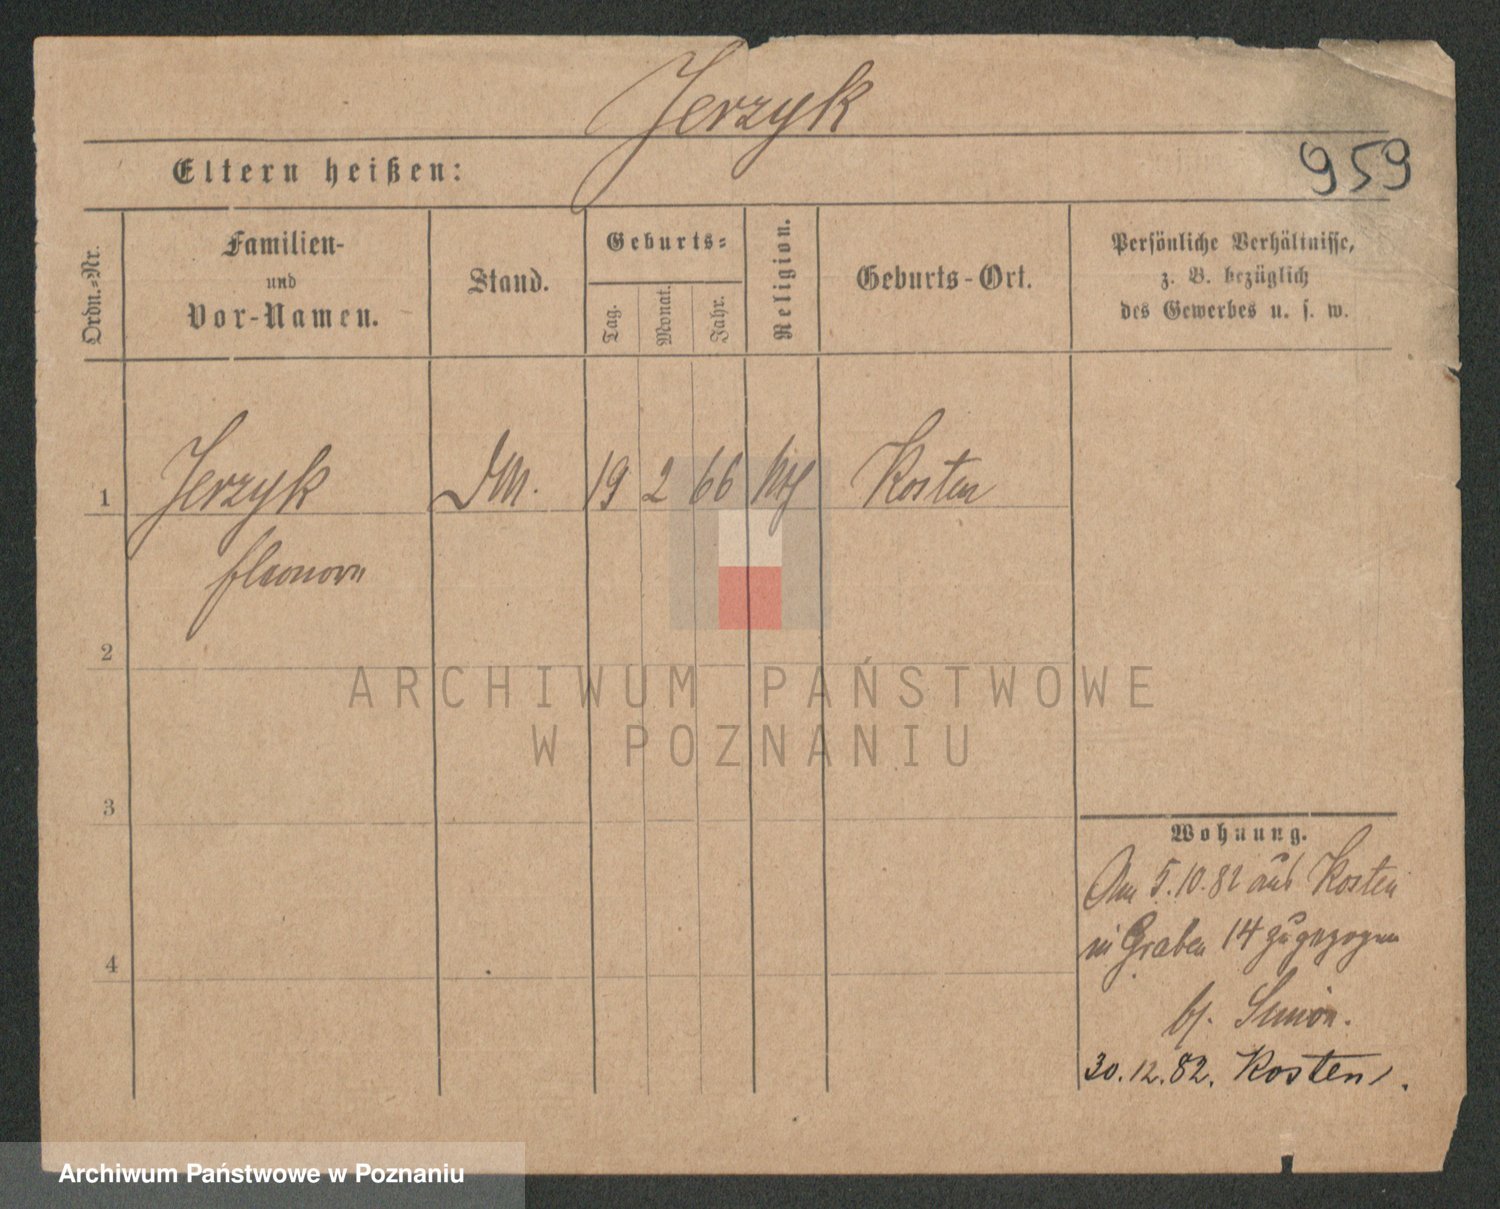 Jerzyk
959
Eltern heißen:
Ordn.-Nr.
Familien-
und
Vor-Namen.
Stand.
Geburts-
Tag.
Monat.
Jahr.
Religion.
Geburts-Ort.
Persönliche Verhältnisse,
z. B. bezüglich
des Gewerbes u. s. w.
1 Jerzyk 19 2 66 kth Kosten
Eleonora
2
3
4
ARCHIWUM PAŃSTWOWE
W POZNANIU
Wohnung.
Am 5.10.82 aus Kosten
in Graben 14 zugezogen
b/. Simon.
30.12.82. Kosten.
Archiwum Państwowe w Poznaniu